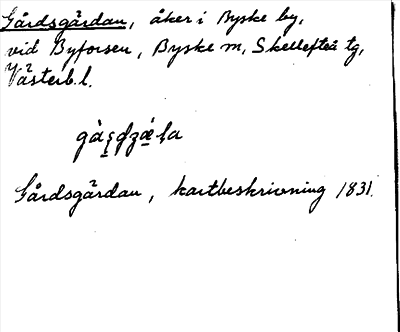 Gårdsgärdan, åker i Byske by,
vid Byforsen, Byske sn, Skellefteå tg,
Västerb. l.
Gårdsgärdan, kartbeskrivning 1831.